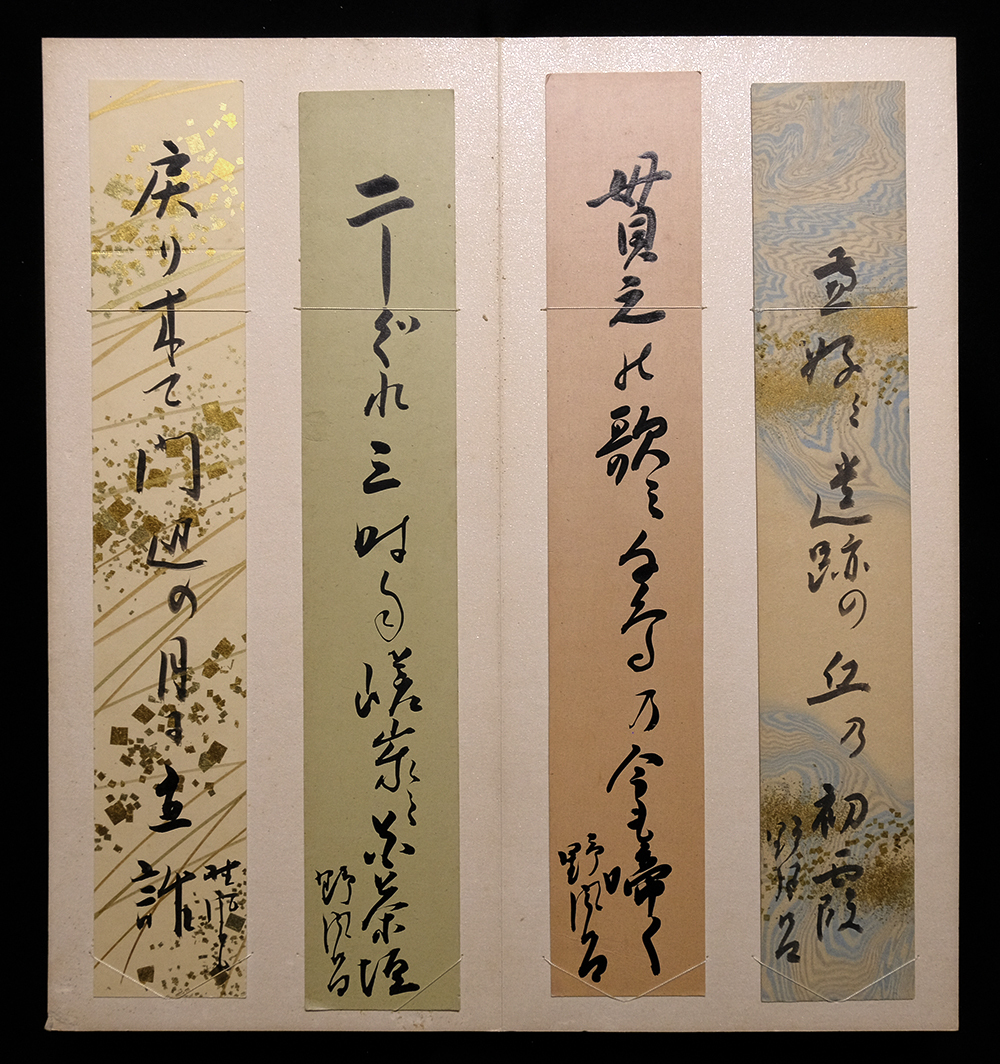 兼好 遺跡の丘乃初霞
野風呂
貫之の歌 鳥乃今も啼く
野風呂
二しぐれ三時雨嵯峨 茶垣
野風呂
戻り来て門辺の月に立話
野風呂